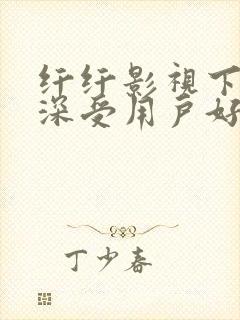 纤纤影视下
深受用户好
丁少春